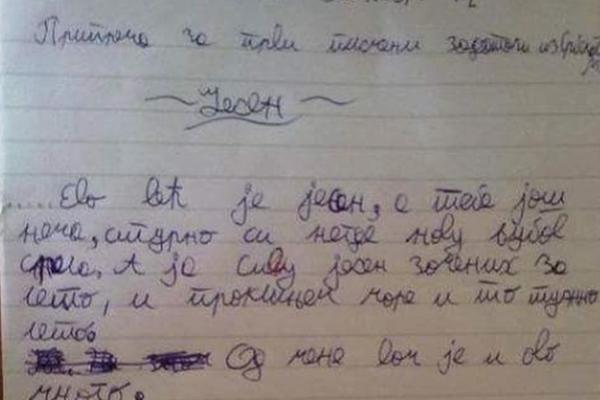 Припрема за први писмени задатак из
~ Јесен ~
.....Ево већ је јесен, а тебе још
нема, сигурно си негде нову љубав
срела. А ја сву јесен за
лето, и проклињем море и то тужно
лето
Од мене вам је и ово
много.